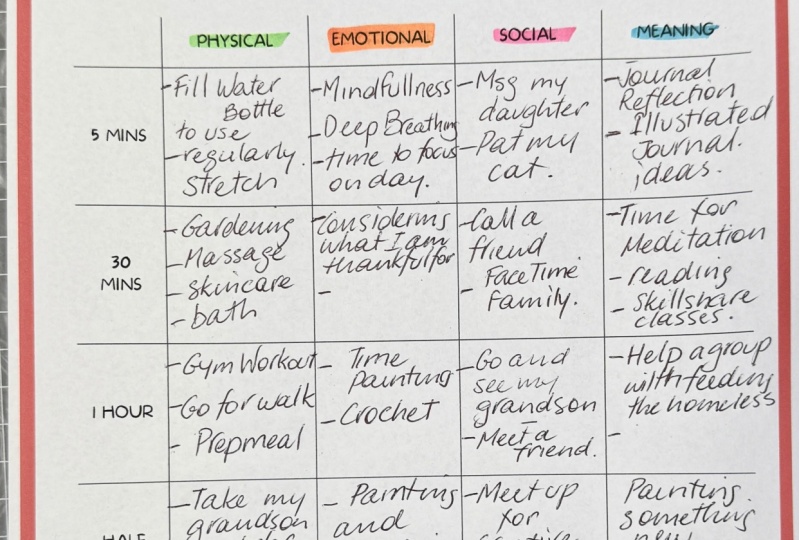 PHYSICAL EMOTIONAL SOCIAL MEANING
5 MINS
-Fill Water
Bottle
to use
-regularly.
stretch
-Mindfullness
-Deep Breathing
-time to focus
on day.
-Msg my
daughter
-Pat my
cat.
-Journal
Reflection
- Illustrated
Journal.
ideas.
30
MINS
-Gardening
-Massage
-skincare
-bath
-Considering
what I am
thankful for
-
-Call a
friend
- FaceTime
Family.
-Time for
Meditation
-reading
- Skillshare
classes.
1 HOUR
-Gym Workout
-Go for walk
- Prepmeal
- Time
Painting
-Crochet
-Go and
see my
grandson
-Meet a
friend.
-Help a group
with feeding
the homeless
-
HALF
-Take my
grandson
- Painting
and
-Meet up
for
Painting.
something
new!